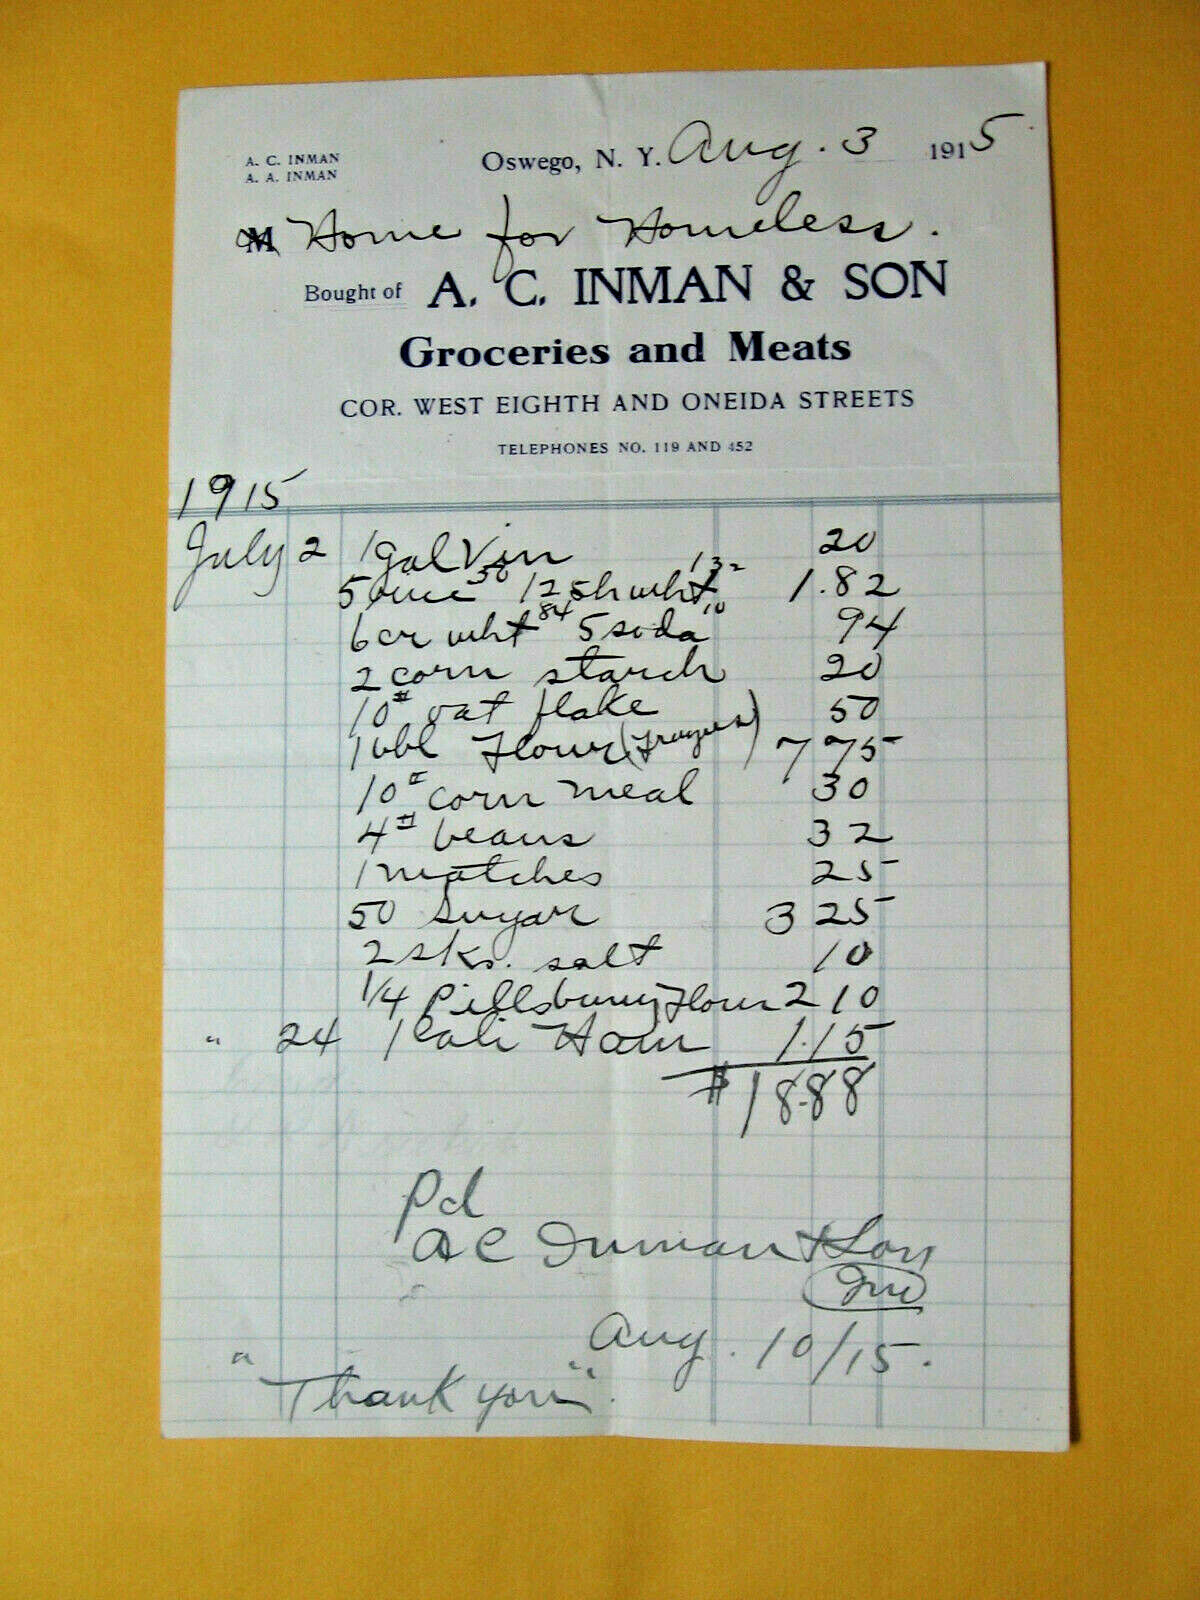 A. C. INMAN
A. A. INMAN
Oswego, N. Y. Aug. 3 1915
M Home for Homeless.
Bought of A. C. INMAN & SON
Groceries and Meats
COR. WEST EIGHTH AND ONEIDA STREETS
TELEPHONES NO. 119 AND 452
1915
July 2 1 gal Vin 20
5 rice 50 12 sh wht 132 1.82
6 cr wht 84 5 soda 10 94
2 corn starch 20
10# oat flake 50
1 bbl Flour 7 75
10# corn meal 30
4# beans 32
1 matches 25
50 Sugar 3 25
2 sks. salt 10
1/4 Pillsbury Flour 2 10
" 24 1 Cali Ham 1.15
$18.88
Pd
A C Inman & Son
Aug. 10/15.
"Thank you".